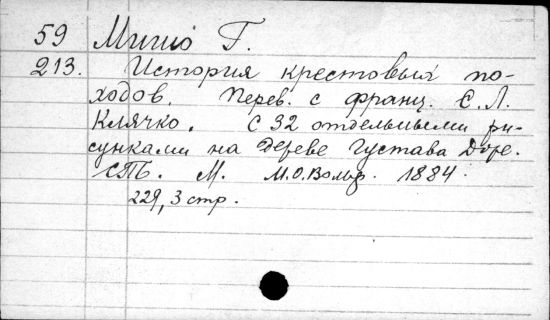 59 Мишо Г.
213. История крестовых по-
ходов. Перев. с франц. С. Л.
Клячко. С 32 отдельными ри-
сунками на дереве Густава Доре.
СПБ. М. М.О.Вольф. 1884.
229, 3 стр.